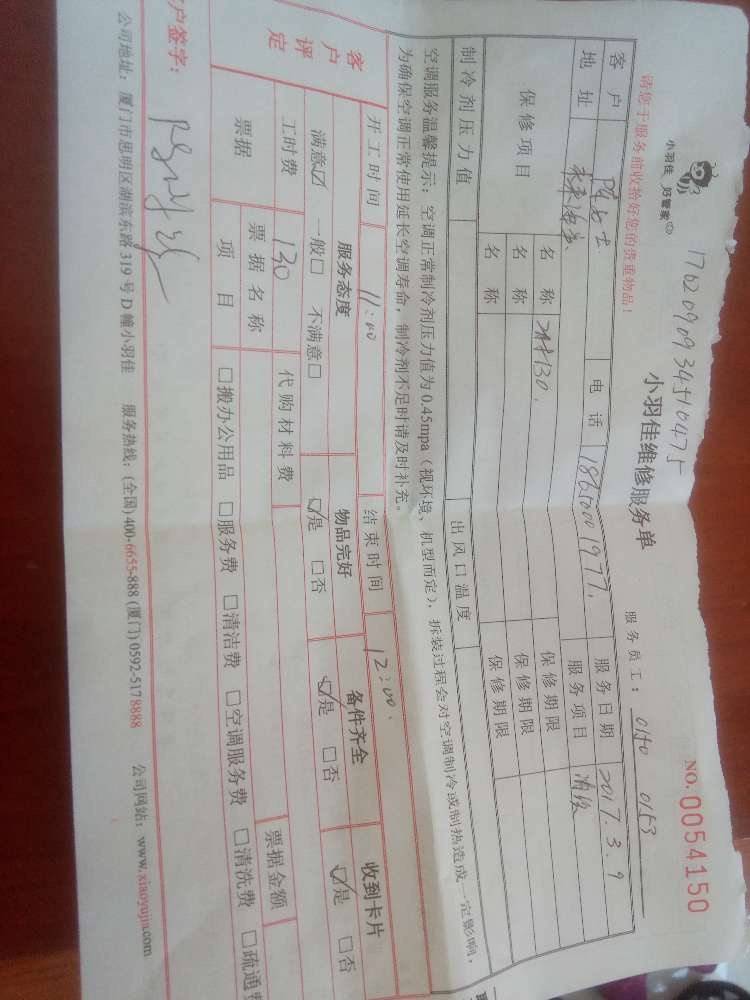 小羽佳 好管家
1762090934510475
小羽佳维修服务单
NO.0054150
请您于服务前收拾好您的贵重物品！
服务员工： 0140 0153
客户 陈女士 电话 18650001977 服务日期 2017.3.9
地址 服务项目
保修项目 名称 保修期限
名称 保修期限
名称 保修期限
制冷剂压力值 出风口温度
空调服务温馨提示：空调正常制冷剂压力值为0.45mpa（视环境、机型而定），拆装过程会对空调制冷或制热造成一定影响，
为确保空调正常使用延长空调寿命，制冷剂不足时请及时补充。
开工时间 11:00 结束时间 12:00.
客户评定 服务态度 物品完好 备件齐全 收到卡片
满意☑ 一般□ 不满意□ ☑是 □否 ☑是 □否 ☑是 □否
工时费 130 代购材料费
票据 票据名称 票据金额
项目 □搬办公用品 □服务费 □清洁费 □空调服务费 □清洗费 □疏通费
户签字：
公司地址：厦门市思明区湖滨东路319号D幢小羽佳 服务热线：(全国)400-6655-888 (厦门)0592-5178888 公司网站：www.xiaoyujia.com